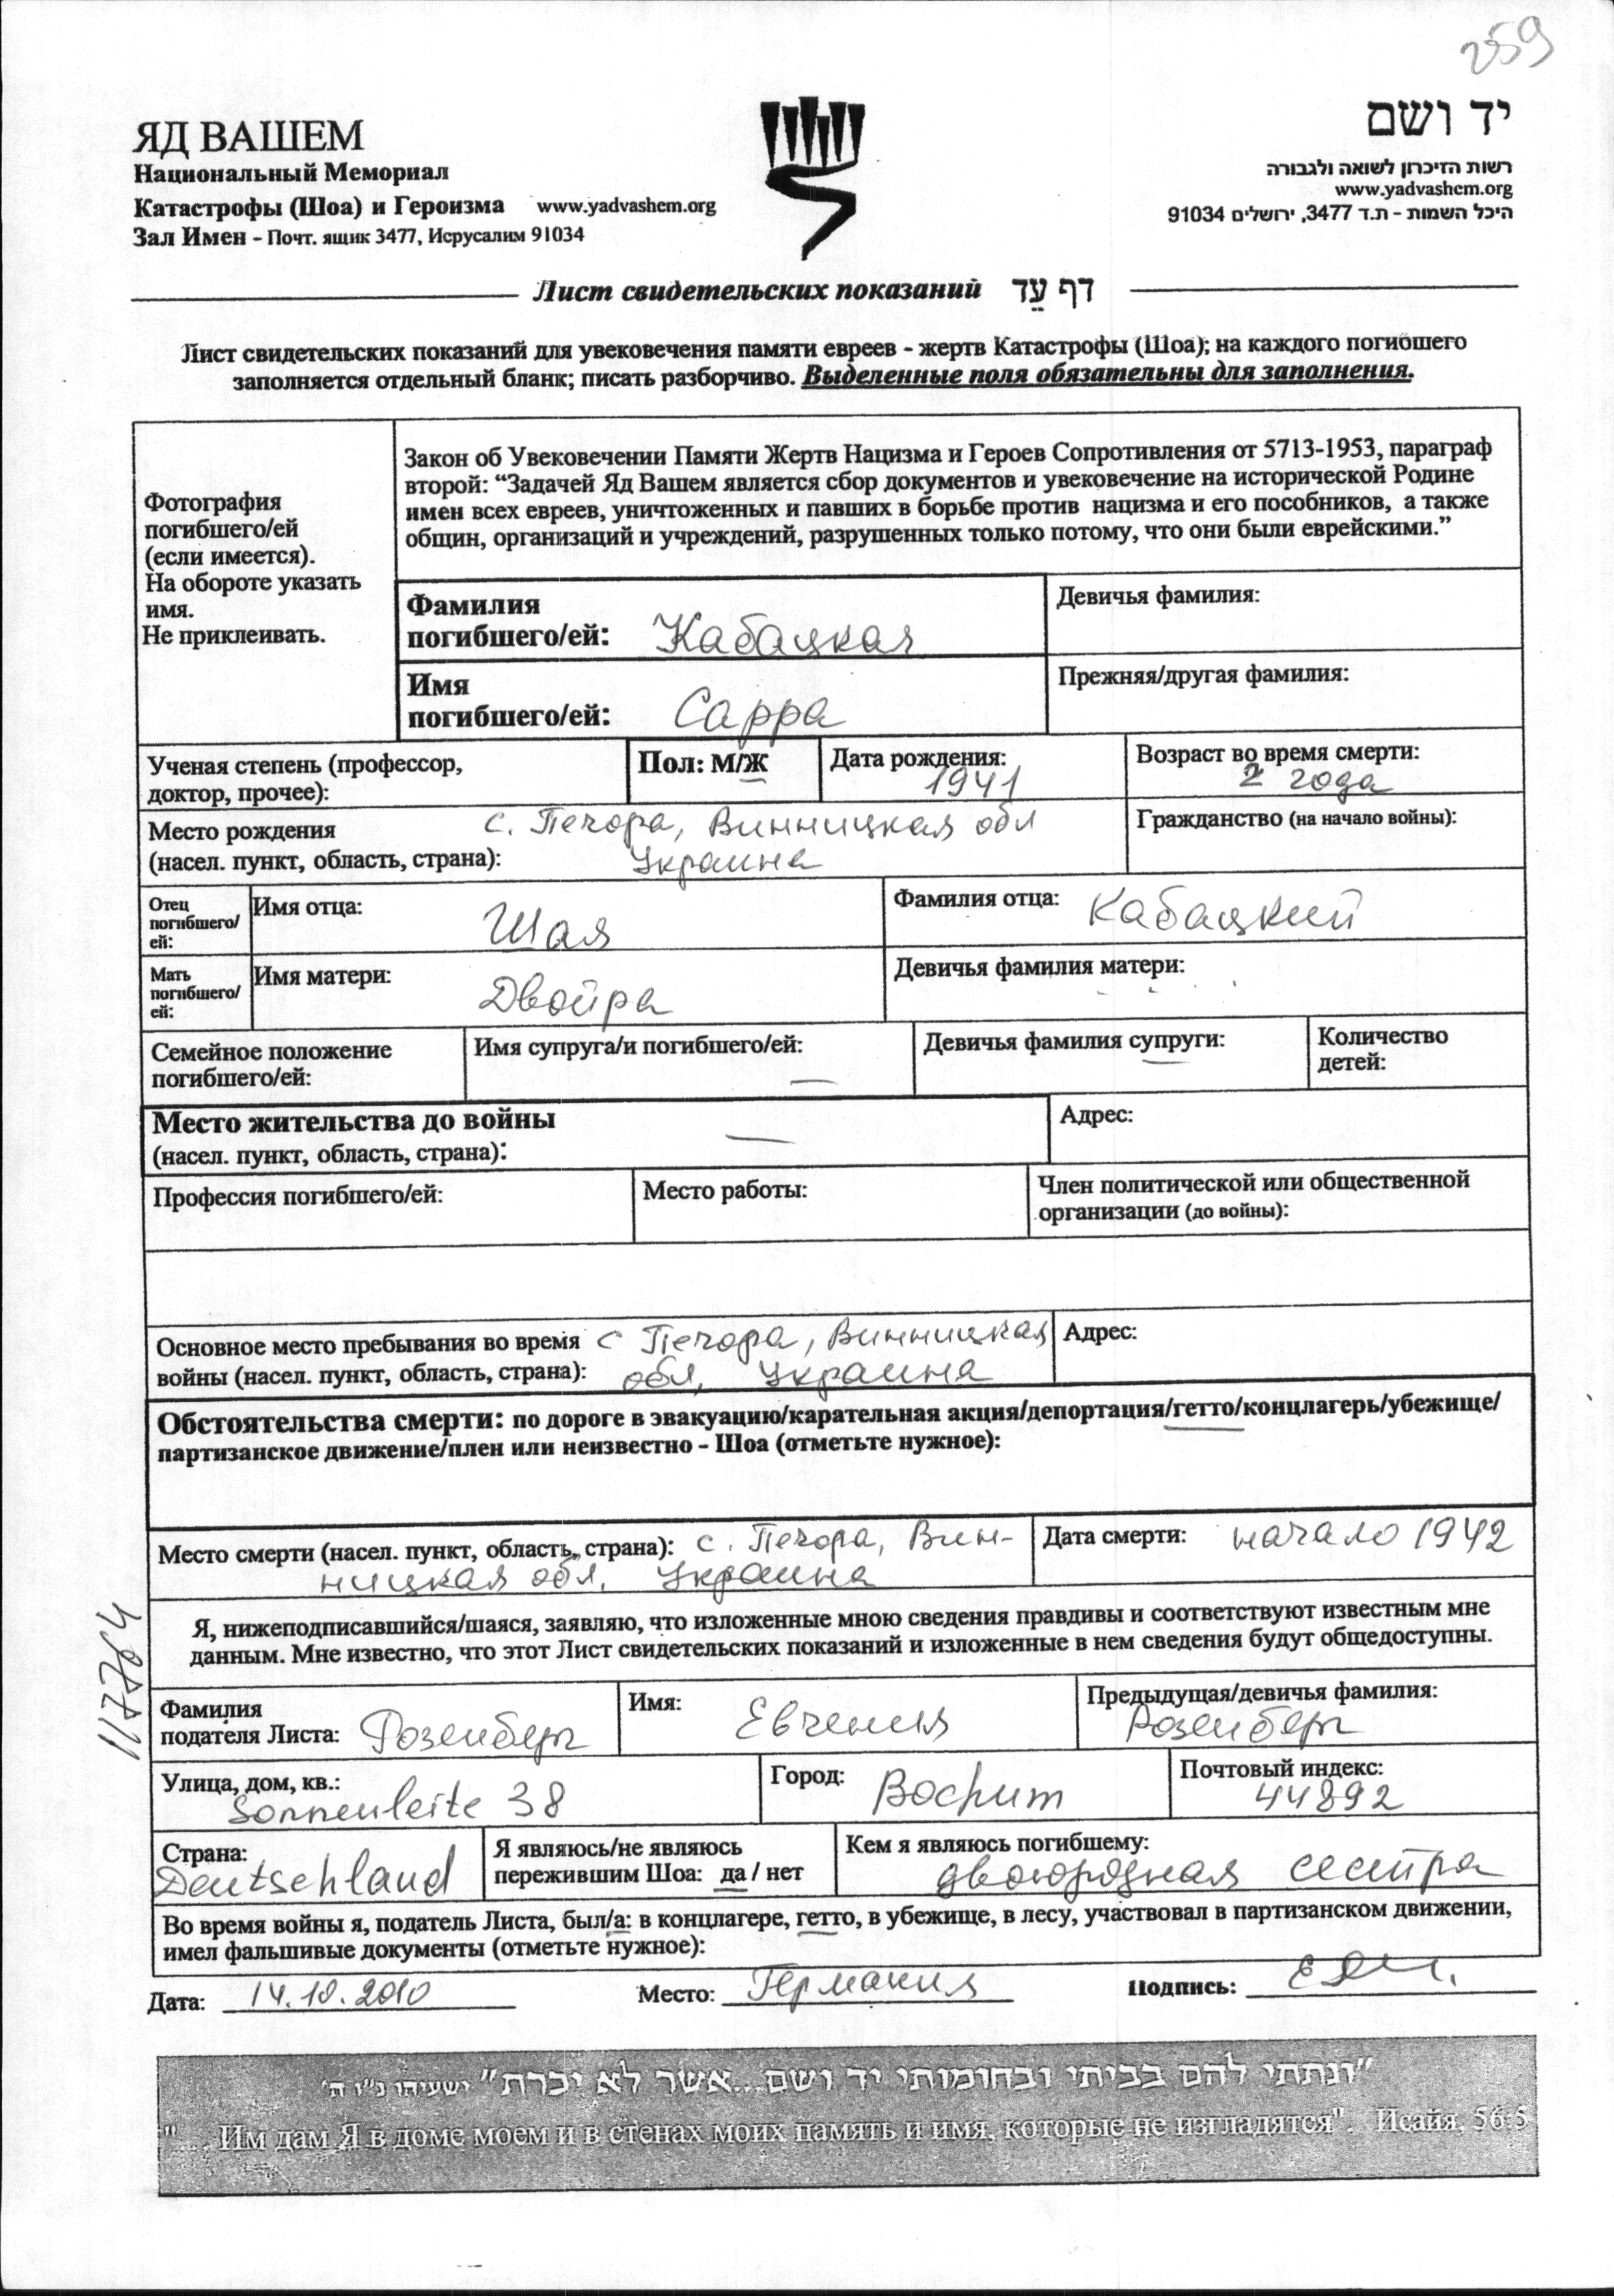 259
ЯД ВАШЕМ
Национальный Мемориал
Катастрофы (Шоа) и Героизма www.yadvashem.org
Зал Имен - Почт. ящик 3477, Исрусалим 91034
יד ושם
רשות הזיכרון לשואה ולגבורה
www.yadvashem.org
היכל השמות - ת.ד 3477, ירושלים 91034
Лист свидетельских показаний דף עֵד
Лист свидетельских показаний для увековечения памяти евреев - жертв Катастрофы (Шоа); на каждого погибшего
заполняется отдельный бланк; писать разборчиво. Выделенные поля обязательны для заполнения.
Фотография
погибшего/ей
(если имеется).
На обороте указать
имя.
Не приклеивать.
Закон об Увековечении Памяти Жертв Нацизма и Героев Сопротивления от 5713-1953, параграф
второй: “Задачей Яд Вашем является сбор документов и увековечение на исторической Родине
имен всех евреев, уничтоженных и павших в борьбе против нацизма и его пособников, а также
общин, организаций и учреждений, разрушенных только потому, что они были еврейскими.”
Фамилия
погибшего/ей: Кабацкая
Девичья фамилия:
Имя
погибшего/ей: Сарра
Прежняя/другая фамилия:
Ученая степень (профессор,
доктор, прочее):
Пол: М/Ж
Дата рождения:
1941
Возраст во время смерти:
2 года
Место рождения с. Печора, Винницкая обл
(насел. пункт, область, страна): Украина
Гражданство (на начало войны):
Отец
погибшего/
ей:
Имя отца: Шая
Фамилия отца: Кабацкий
Мать
погибшего/
ей:
Имя матери: Двойра
Девичья фамилия матери:
Семейное положение
погибшего/ей:
Имя супруга/и погибшего/ей: —
Девичья фамилия супруги: —
Количество
детей:
Место жительства до войны —
(насел. пункт, область, страна):
Адрес:
Профессия погибшего/ей:
Место работы:
Член политической или общественной
организации (до войны):
Основное место пребывания во время с Печора, Винницкая
войны (насел. пункт, область, страна): обл, Украина
Адрес:
Обстоятельства смерти: по дороге в эвакуацию/карательная акция/депортация/гетто/концлагерь/убежище/
партизанское движение/плен или неизвестно - Шоа (отметьте нужное):
Место смерти (насел. пункт, область, страна): с. Печора, Вин-
ницкая обл. Украина
Дата смерти: начало 1942
Я, нижеподписавшийся/шаяся, заявляю, что изложенные мною сведения правдивы и соответствуют известным мне
данным. Мне известно, что этот Лист свидетельских показаний и изложенные в нем сведения будут общедоступны.
117764
Фамилия
подателя Листа: Розенберг
Имя: Евгения
Предыдущая/девичья фамилия:
Розенберг
Улица, дом, кв.:
Sonnenleite 38
Город: Bochum
Почтовый индекс:
44892
Страна:
Deutschland
Я являюсь/не являюсь
пережившим Шоа: да / нет
Кем я являюсь погибшему:
двоюродная сестра
Во время войны я, податель Листа, был/а: в концлагере, гетто, в убежище, в лесу, участвовал в партизанском движении,
имел фальшивые документы (отметьте нужное):
Дата: 14.10.2010 Место: Германия Подпись:
"ונתתי להם בביתי ובחומותי יד ושם...אשר לא יכרת" ישעיהו נ"ו ה'
"... Им дам Я в доме моем и в стенах моих память и имя, которые не изгладятся". Исайя, 56:5